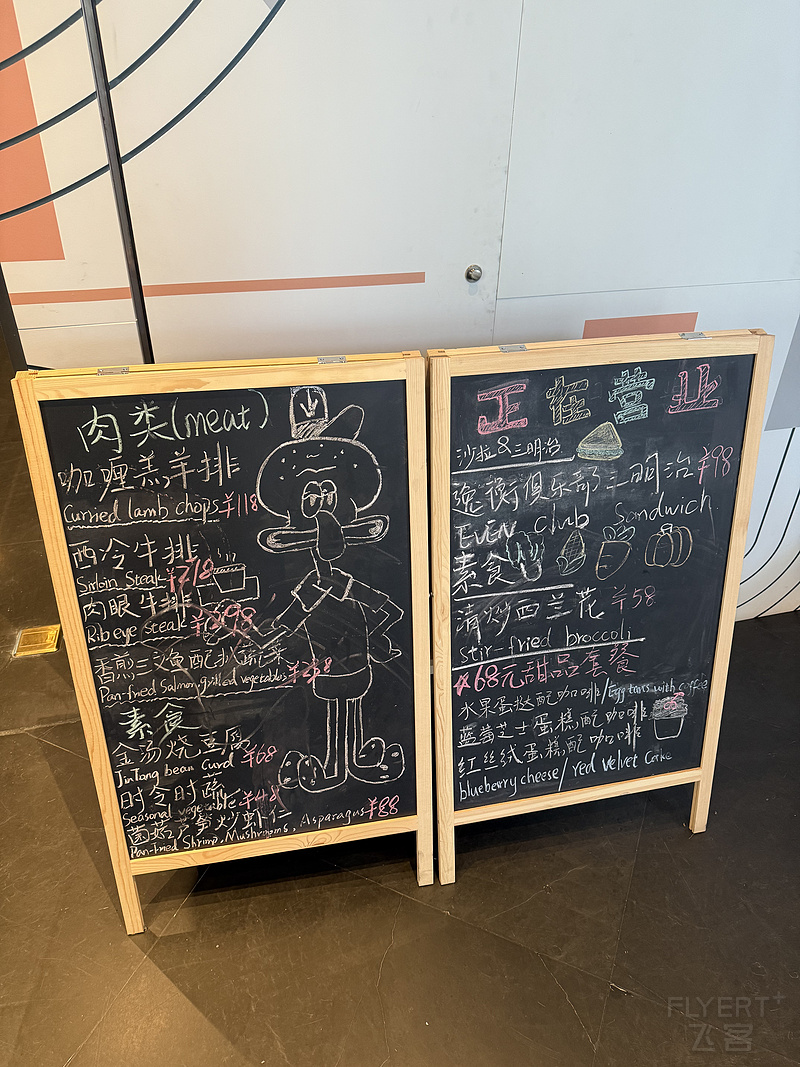 肉类(meat)
咖喱羔羊排
Curried lamb chops ¥118
西冷牛排
Sirloin Steak
肉眼牛排
Rib eye steak
香煎三文鱼配扒蔬菜
Pan-fried Salmon, grilled vegetables
素食
金汤烧豆腐
JinTang bean curd ¥68
时令时蔬
Seasonal vegetable ¥48
菌菇芦笋炒虾仁
Pan-fried Shrimp, Mushrooms, Asparagus ¥88
正在营业
沙拉&三明治
逸衡俱乐部三明治 ¥98
EVEN club Sandwich
素食
清炒西兰花 ¥58
stir-fried broccoli
¥68元甜品套餐
水果蛋挞配咖啡/Egg tarts with coffee
蓝莓芝士蛋糕配咖啡
红丝绒蛋糕配咖啡
blueberry cheese/red velvet Cake
FLYERT+
飞客